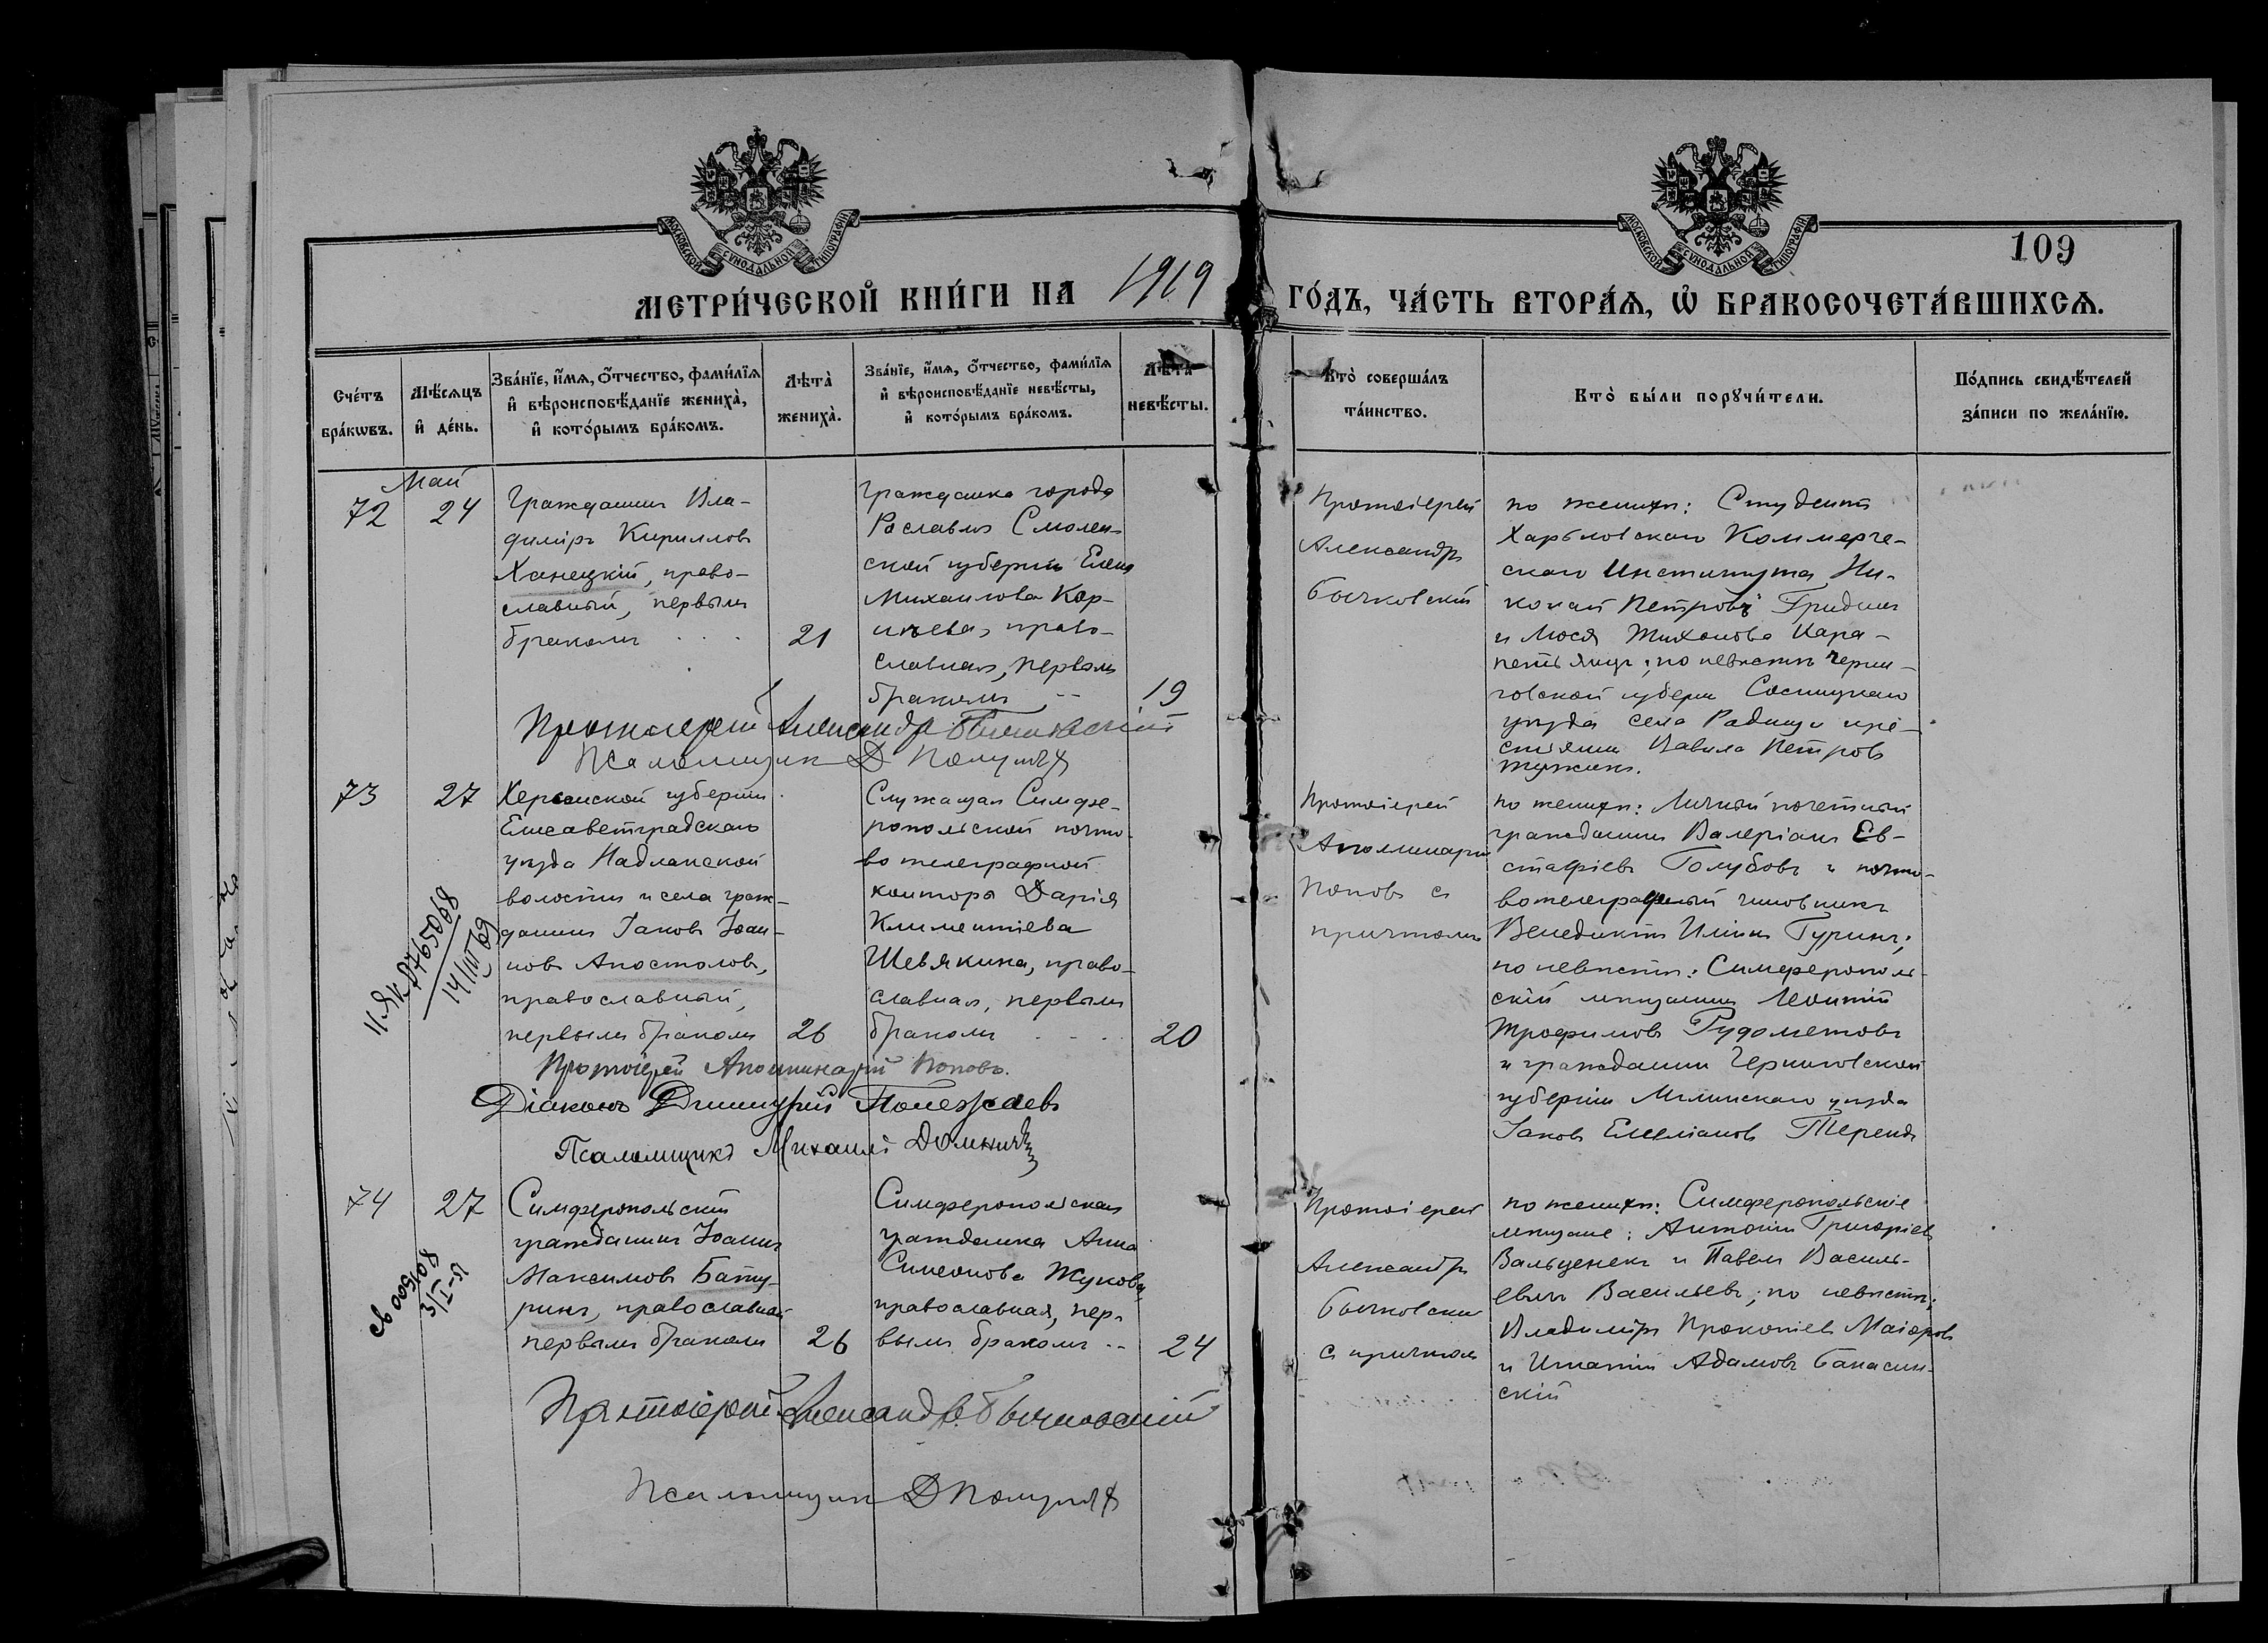 МОСКОВСКОЙ СѴНОДАЛЬНОЙ ТИПОГРАФІИ
МОСКОВСКОЙ СѴНОДАЛЬНОЙ ТИПОГРАФІИ
109
МЕТРИ́ЧЕСКОЙ КНИ́ГИ НА 1919 ГО́ДЪ, ЧА́СТЬ ВТОРА́Я, Ѡ҆ БРАКОСОЧЕТА́ВШИХСЯ.
Сче́тъ бра́кѡвъ.
Мѣ́сяцъ и҆ де́нь.
Зва́нїе, и҆́мя, ѻ҆́тчество, фами́лїя
и҆ вѣроисповѣ́данїе жениха̀,
и҆ кото́рымъ бра́комъ.
Лѣта̀ жениха̀.
Зва́нїе, и҆́мя, ѻ҆́тчество, фами́лїя
и҆ вѣроисповѣ́данїе невѣ́сты,
и҆ кото́рымъ бра́комъ.
Лѣта̀ невѣ́сты.
Кто̀ соверша́лъ та́инство.
Кто̀ бы́ли порꙋчи́тели.
По́дпись свидѣ́телей за́писи по жела́нїю.
Май
72
24
Гражданинъ Вла-
диміръ Кирилловъ
Ханецкій, право-
славный, первымъ
бракомъ . . .
21
Гражданка города
Рославля Смолен-
ской губерніи Елена
Михаилова Кор-
нѣева, право-
славная, первымъ
бракомъ
19
Протоіерей
Александръ
Бычковскій
по женихѣ: Студентъ
Харьковскаго Коммерче-
скаго Института, Ни-
колай Петровъ Гридинъ
и Люся Тихонова Кара-
петьянцъ; по невѣстѣ Черни-
говской губерн Сосницкаго
уѣзда села кре-
стьянинъ Вавила Петровъ
Протоіерей Александръ Бычковскій
Псаломщик Д
73
27
Херсонской губерніи
Елисаветградскаго
уѣзда Надлакской
волости и села граж-
данинъ Іаковъ Іоан-
новъ Апостоловъ,
православный,
первымъ бракомъ
26
Служащая Симфе-
ропольской почто-
во телеграфной
конторы Дарія
Климентіева
Шевякина, право-
славная, первымъ
бракомъ . . .
20
Протоіерей
Аполлинарій
Поповъ съ
причтомъ
по женихѣ: Личный почетный
гражданинъ Валеріанъ Ев-
стафіевъ Голубовъ и почто-
вотелеграфный чиновникъ
Венедиктъ Ильинъ Гуринъ;
по невѣстѣ: Симферополь-
скій мѣщанинъ Леонтій
Трофимовъ Гудометовъ
и гражданинъ Черниговской
губерніи Мглинскаго уѣзда
Іаковъ Емеліановъ
14/III 69
Протоіерей Аполлинарій Поповъ.
Діаконъ Димитрій Полежаевъ
Псаломщикъ Михаилъ
74
27
Симферопольскій
гражданинъ Іоаннъ
Максимовъ Бату-
ринъ, православный
первымъ бракомъ
26
Симферопольская
гражданка Анна
Симеонова Жукова,
православная, пер-
вымъ бракомъ ..
24
Протоіерей
Александръ
Бычковскій
съ причтомъ
по женихѣ: Симферопольскіе
мѣщане: Антоній Григоріевъ
и Павелъ Василь-
евичъ Васильевъ; по невѣстѣ:
Владиміръ Прокопіевъ Маіоровъ
и Игнатій Адамовъ Банасин-
скій
Протоіерей Александръ Бычковскій
Псаломщик Д